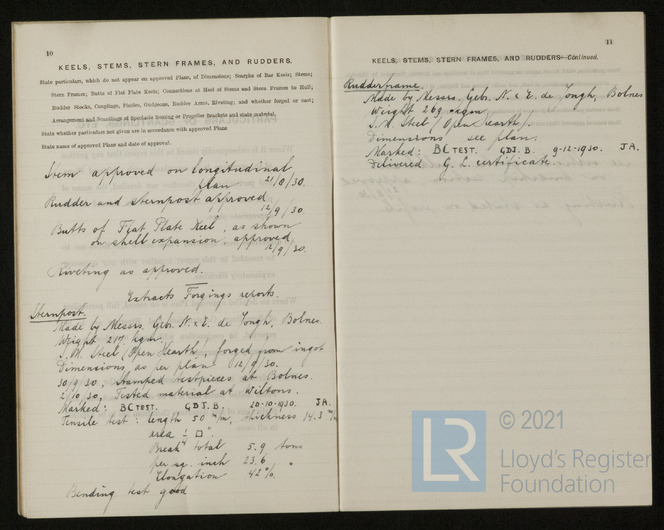 10
KEELS, STEMS, STERN FRAMES, AND RUDDERS.
State particulars, which do not appear on approved Plans, of Dimensions; Scarphs of Bar Keels; Stems;
Stern Frames; Butts of Flat Plate Keels; Connections at Heel of Stems and Stern Frames to Hull;
Rudder Stocks, Couplings, Pintles, Gudgeons, Rudder Arms, Riveting; and whether forged or cast;
Arrangement and Scantlings of Spectacle Bossing or Propeller Brackets and state material.
State whether particulars not given are in accordance with approved Plans
State name of approved Plans and date of approval.
Stem approved on longitudinal
plan 21/8/30.
Rudder and sternpost approved
12/9/30.
Butts of Flat Plate Keel, as shown
on shell expansion, approved
12/9/30.
Riveting as approved.
Extracts Forgings reports.
Sternpost.
Made by Messrs. Gebr. N. & E. de Jongh, Bolnes.
Weight 217 kgm.
S. M. Steel (Open Hearth), forged from ingot
Dimensions, as per plan 12/9/30.
30/9/30. Stamped testpieces at Bolnes.
2/10/30. Tested material at Wiltons.
Marked: BC TEST. GDJ. B. 20-10-1930. J.A.
Tensile test: length 50 m/m, thickness 14.3 m/m
area
Break total 5.9 tons
per sq. inch 23.6 "
Elongation 42 %.
Bending test good
11
KEELS, STEMS, STERN FRAMES, AND RUDDERS—Continued.
Rudderframe.
Made by Messrs. Gebr. N. & E. de Jongh, Bolnes
Weight 269
S. M. Steel (Open earth).
Dimensions see plan.
Marked: BC TEST. GDJ. B. 9-12-1930. J.A.
Delivered G. L. certificate.
LR
© 2021
Lloyd's Register
Foundation